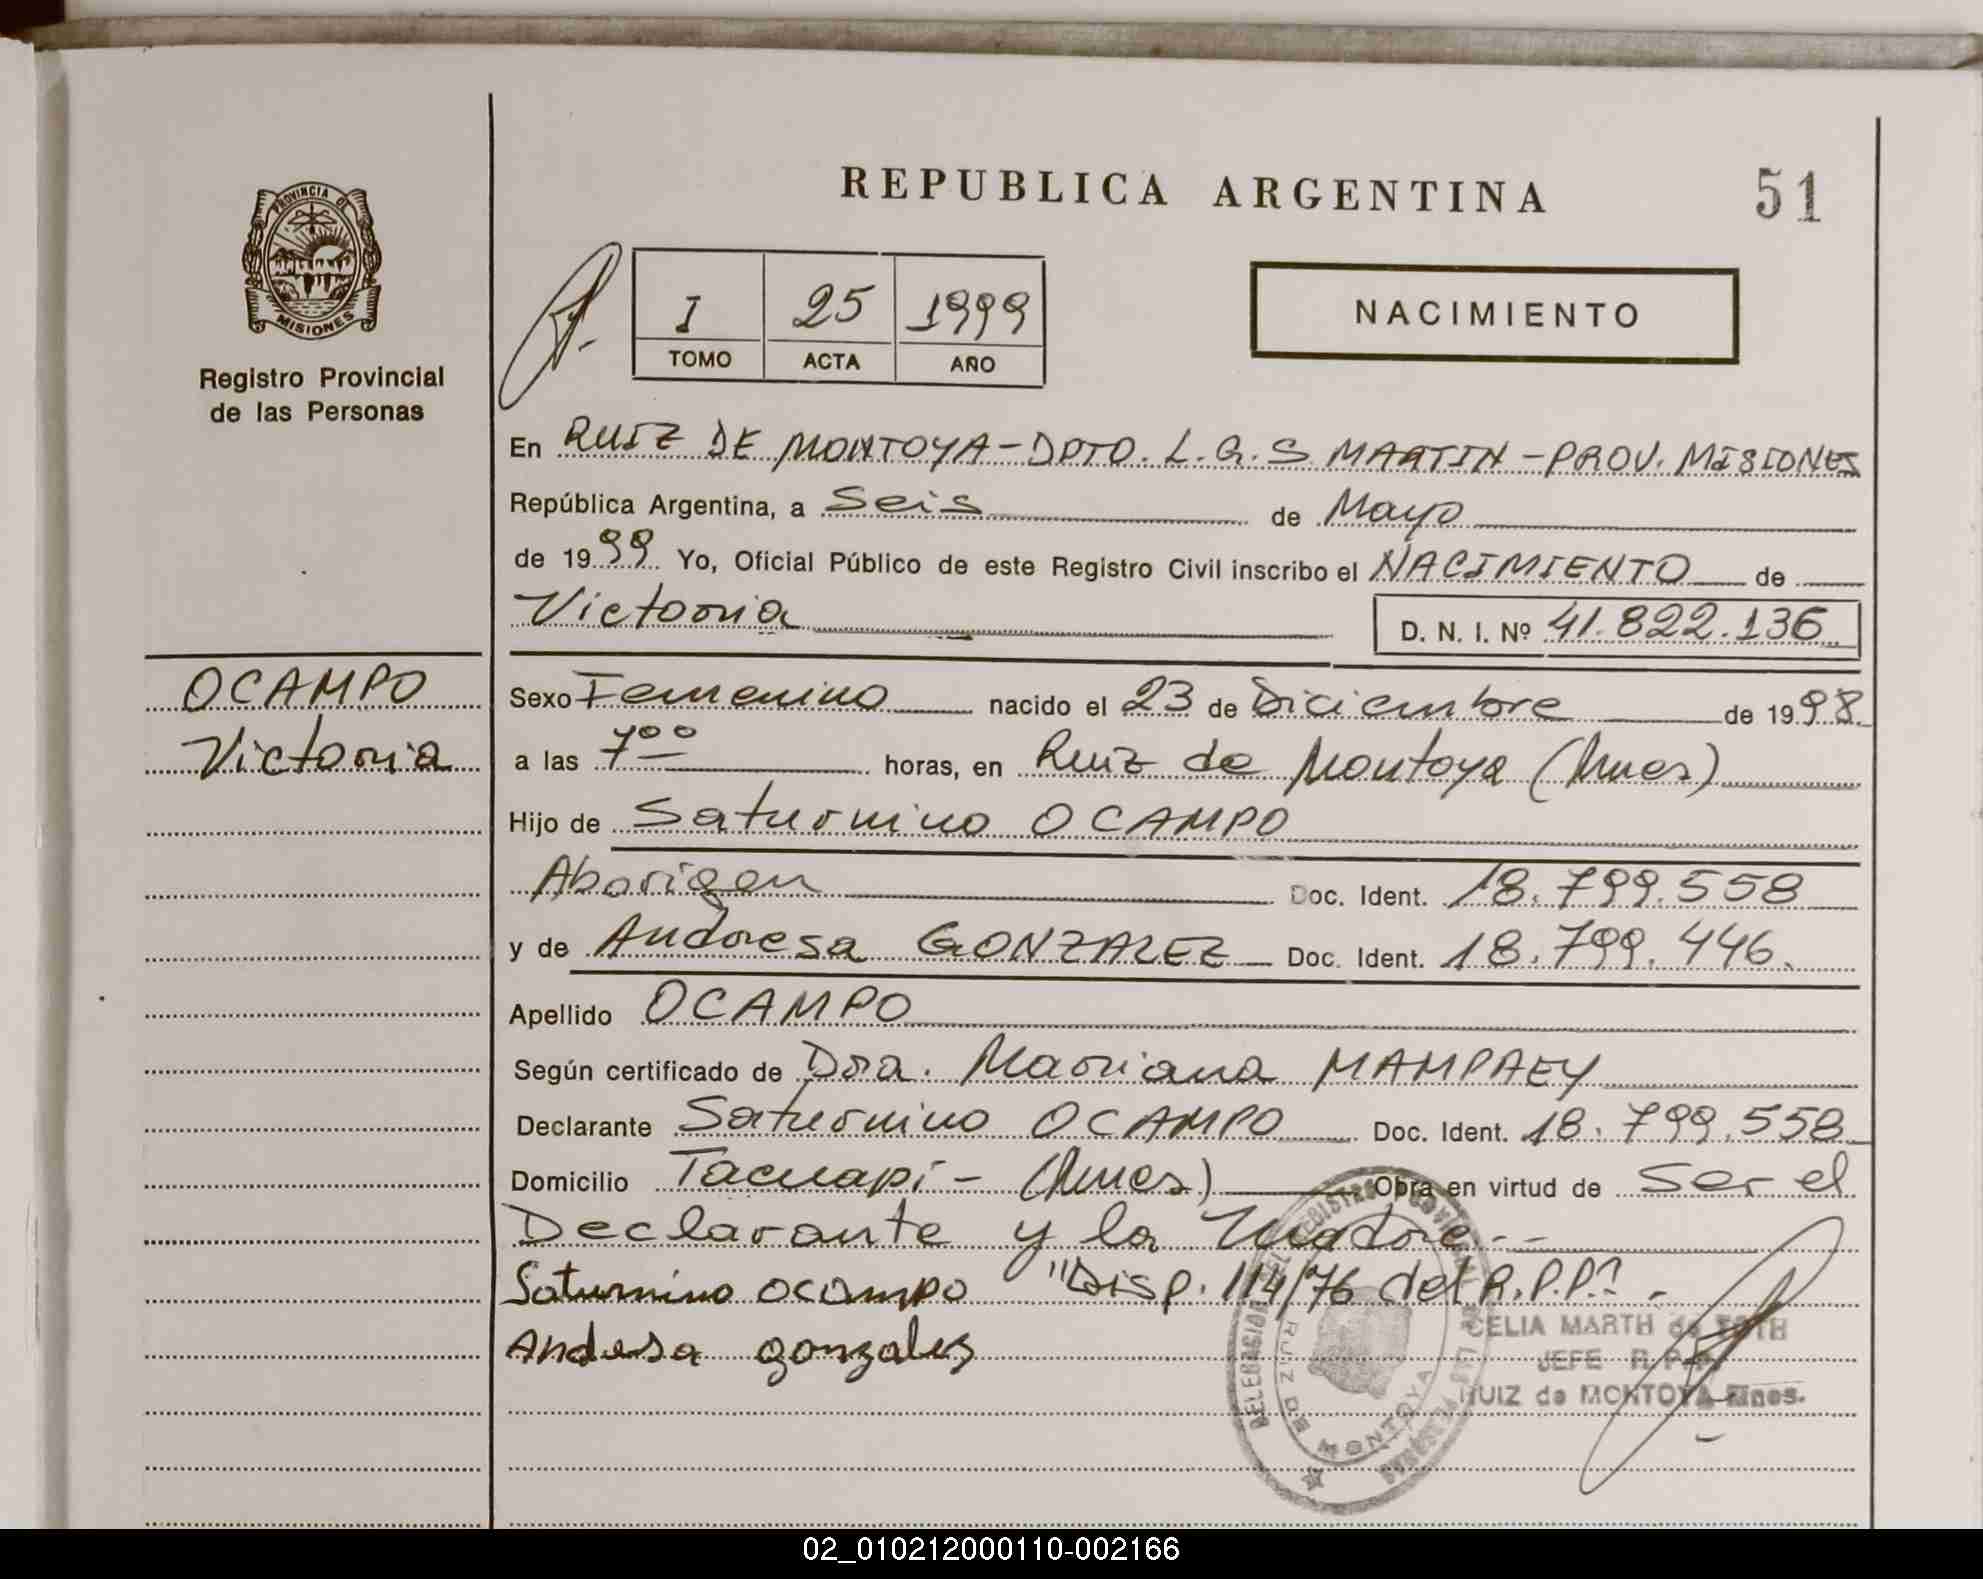 REPUBLICA ARGENTINA
51
PROVINCIA DE
MISIONES
Registro Provincial
de las Personas
I 25 1999
TOMO ACTA AÑO
NACIMIENTO
En RUIZ DE MONTOYA-DPTO. L.G.S. MARTIN-PROV. MISIONES
República Argentina, a Seis de Mayo
de 1999 Yo, Oficial Público de este Registro Civil inscribo el NACIMIENTO de
Victoria D. N. I. Nº 41.822.136
OCAMPO
Victoria
Sexo Femenino nacido el 23 de Diciembre de 1998
a las 7⁰⁰ horas, en Ruiz de Montoya (Mnes)
Hijo de Saturnino OCAMPO
Aborigen Doc. Ident. 18.799.558
y de Andresa GONZALEZ Doc. Ident. 18.799.446.
Apellido OCAMPO
Según certificado de Dra. Mariana MAMPAEY
Declarante Saturnino OCAMPO Doc. Ident. 18.799.558
Domicilio Tacuapí - (Mnes) Obra en virtud de Ser el
Declarante y la Madre.--
Saturnino ocampo "Disp. 114/76 del R.P.P." -
Andesa gonzales
CELIA MARTH de TOTH
JEFE R.P.P.
RUIZ de MONTOYA - Mnes.
DELEGACION DEL REGISTRO PROVINCIAL DE LAS PERSONAS
RUIZ DE MONTOYA
02_010212000110-002166